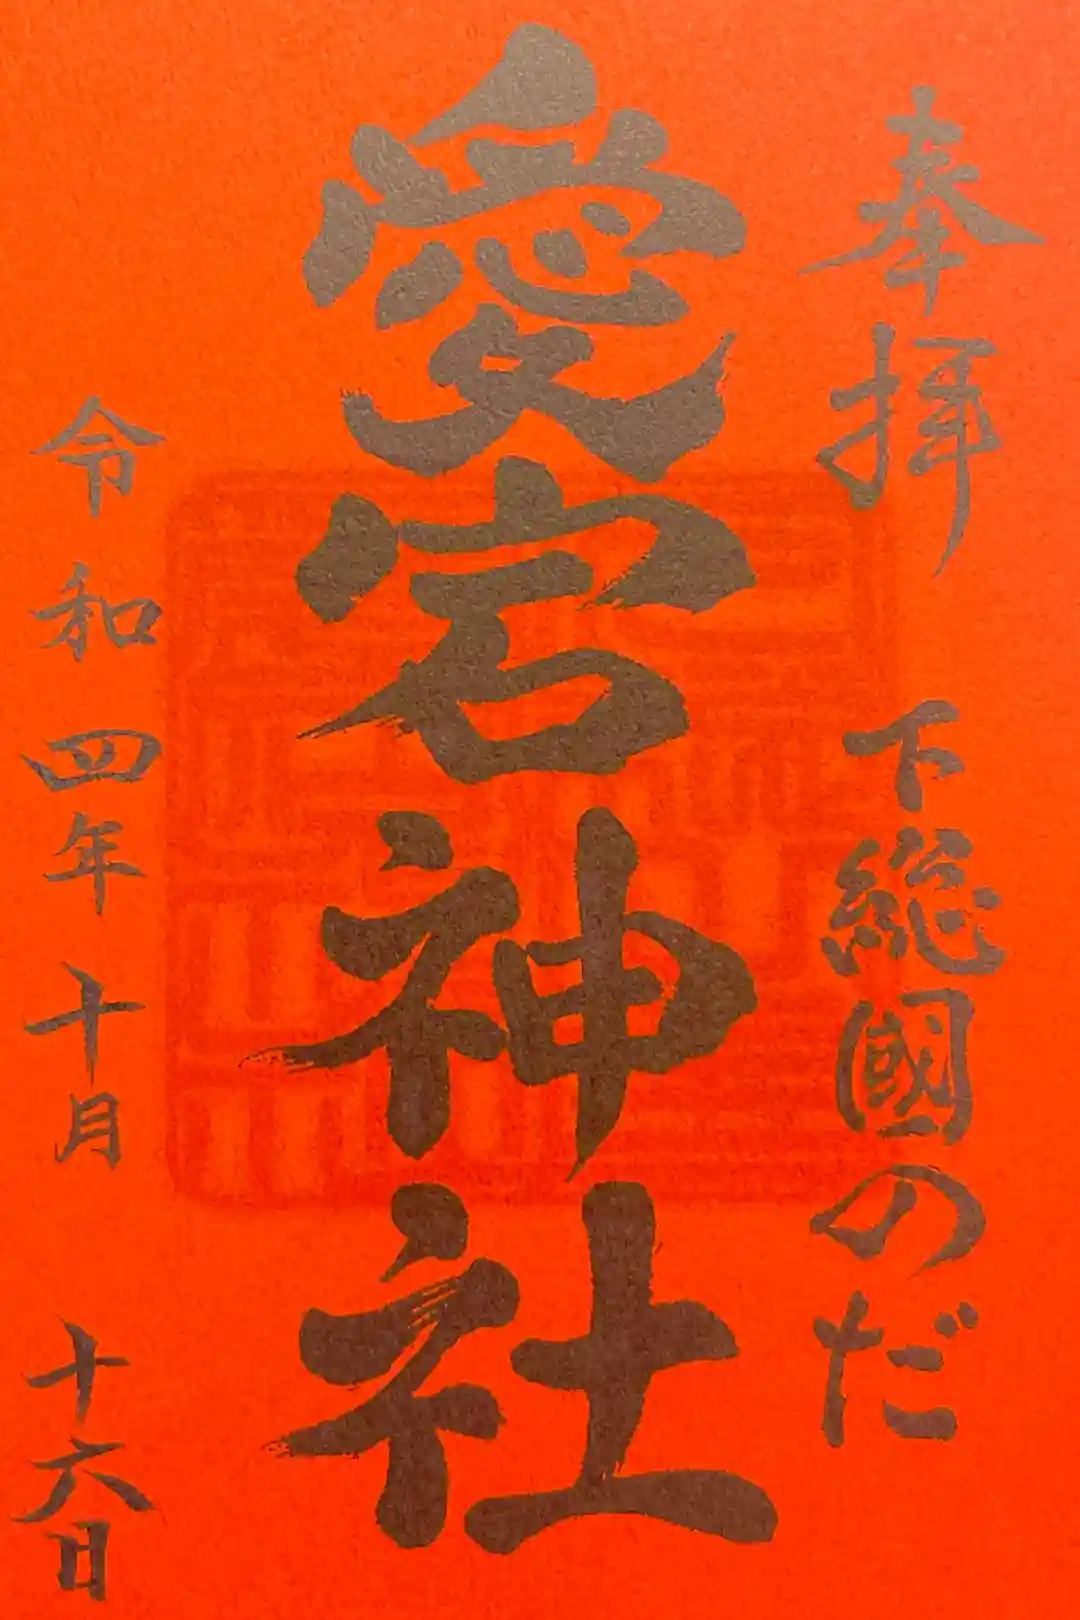 奉拝 下総國のだ
愛宕神社
令和四年十月十六日